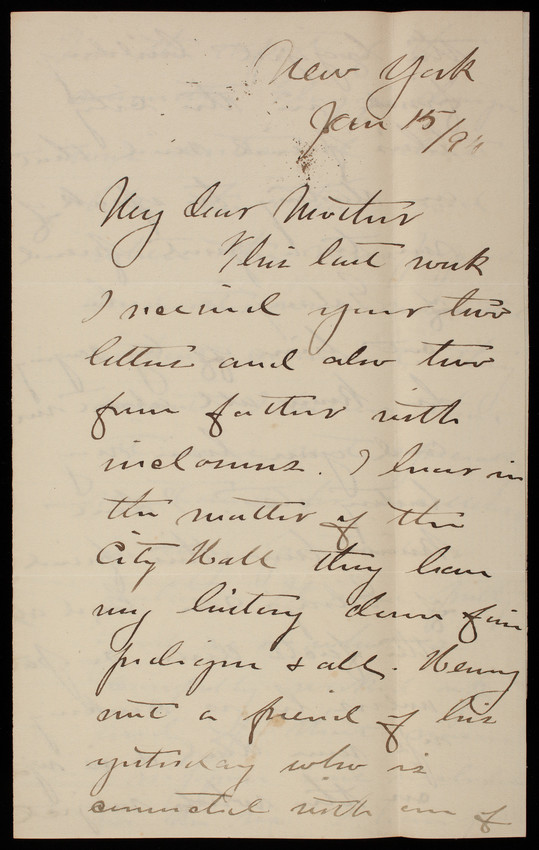 New York
Jan 15/90
My dear Mother
This last week
I received your two
letters and also two
from father with
inclosures. I hear in
the matter of the
City Hall they have
my history down fine
pedigree & all. Henry
met a friend of his
yesterday who is
connected with one of